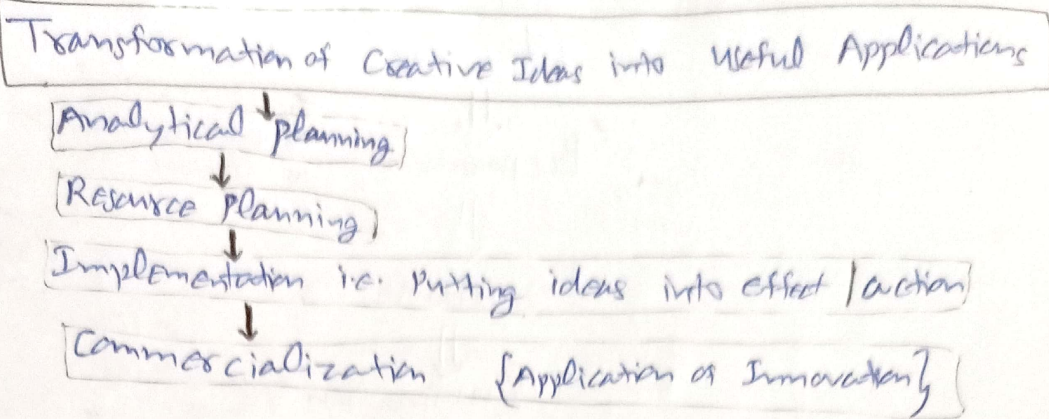 Transformation of Creative Ideas into Useful Applications
Analytical planning
Resource Planning
Implementation i.e. Putting ideas into effect / action
Commercialization {Application of Innovation}